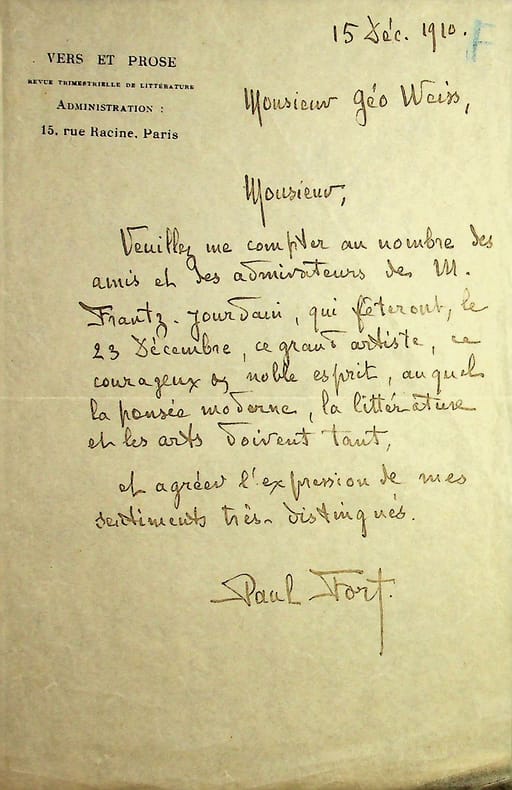 15 Déc. 1910.
F
VERS ET PROSE
REVUE TRIMESTRIELLE DE LITTÉRATURE
ADMINISTRATION :
15, rue Racine, Paris
Monsieur Géo Weiss,
Monsieur,
Veuillez me compter au nombre des
amis et des admirateurs de M.
Frantz-Jourdain, qui fêteront, le
23 Décembre, ce grand artiste, ce
courageux et noble esprit, auquel
la pensée moderne, la littérature
et les arts doivent tant,
et agréer l'expression de mes
sentiments très-distingués.
Paul Fort.